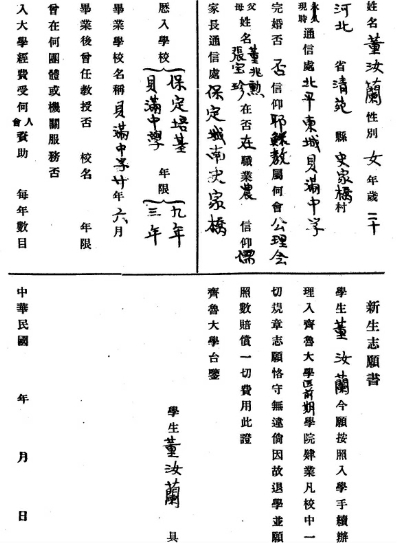 姓名 董汝蘭 性別 女 年歲 二十
河北 省 清苑 縣 史家橋 村
永久 現時 通信處 北平東城貝滿中学
完婚否 否 信仰 耶穌教 屬何會 公理会
父母 姓名 董兆勲 張宝珍 在否 在 職業 農 信仰 儒
家長通信處 保定城南史家橋
歷入學校 保定培基 年限 九年
貝滿中学 三年
畢業學校名稱 貝滿中学 廿年 六月
畢業後曾任教授否 校名 年限
曾在何團體或機關服務否
入大學經費受何 人會 資助 每年數目
新生志願書
學生 董汝蘭 今願按照入學手續辦
理入齊魯大學医前期學院肄業凡校中一
切規章志願恪守無違倘因故退學並願
照數賠償一切費用此證
齊魯大學台鑒
學生 董汝蘭 具
中華民國 年 月 日